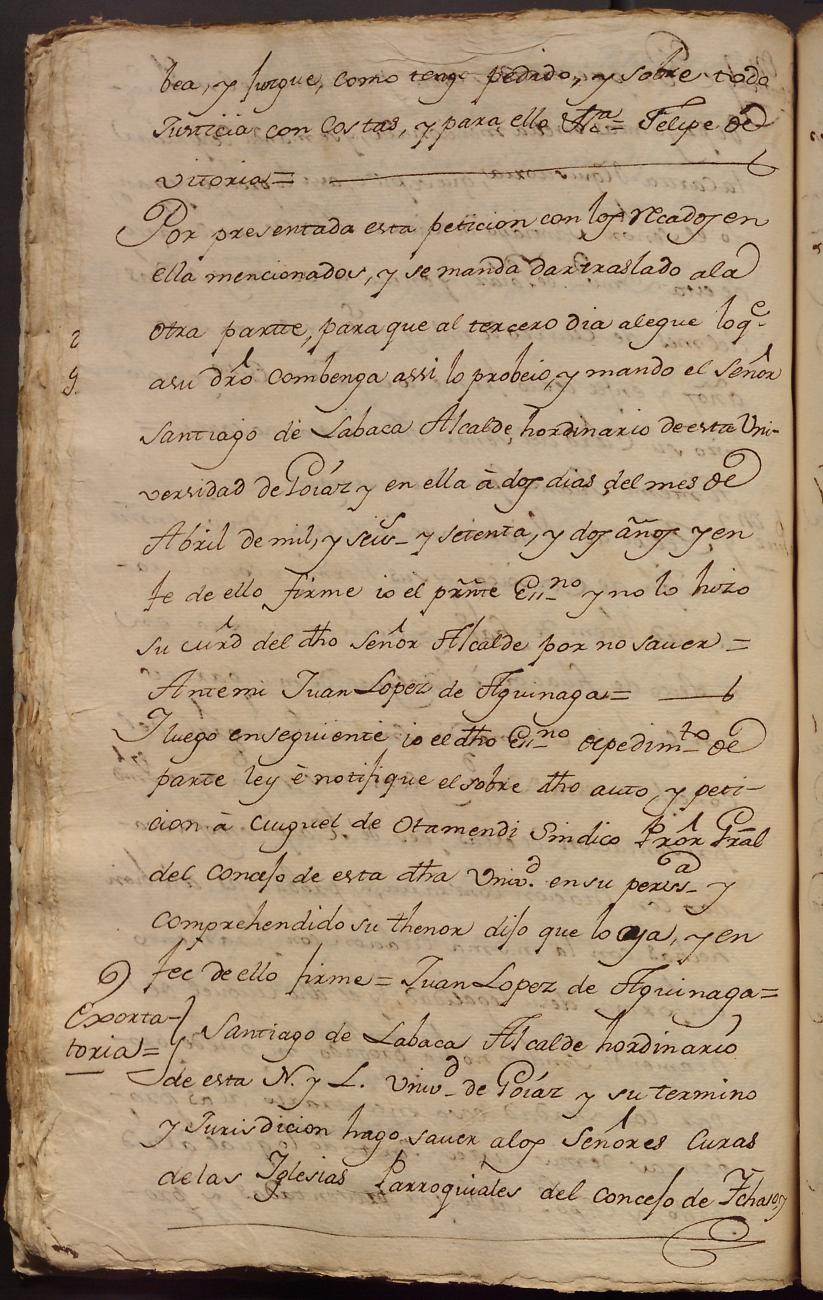 bea, y jusgue, como tengo pedido, y sobre todo
Justicia con Costas, y para ello Nta = Felipe de
vitoria=
Por presentada esta peticion con los recados en
ella mencionados, y se manda dar traslado ala
otra partte, para que al tercero dia alegue loqe.
asu dro combenga assi lo probeio, y mando el Señor
Santiago de Labaca Alcalde hordinario de esta Uni-
versidad de Goiaz y en ella à dos dias del mes de
Abril de mil, y seiss_ y setenta, y dos años y en
fe de ello firme io el prnte Essno y no lo hizo
su md del dho Señor Alcalde por no saver =
Antemi Juan Lopez de Aguinaga=
I luego enseguiente io el dho Essno depedimto de
parte ley è notifique el sobre dho auto, y peti-
cion à Miguel de Otamendi Sindico Pror Gral
del Concejo de esta dha Univd. en su perssa y
comprehendido su thenor dijo que lo oya, y en
fee de ello firme = Juan Lopez de Aguinaga=
Exorta-
toria=
Santiago de Labaca Alcalde hordinario
de esta N. y L. Univd de Goiaz y su termino
y Jurisdicion hago saver alos Señores Curas
delas Iglesias Parroquiales del Concejo de Ichaso, y